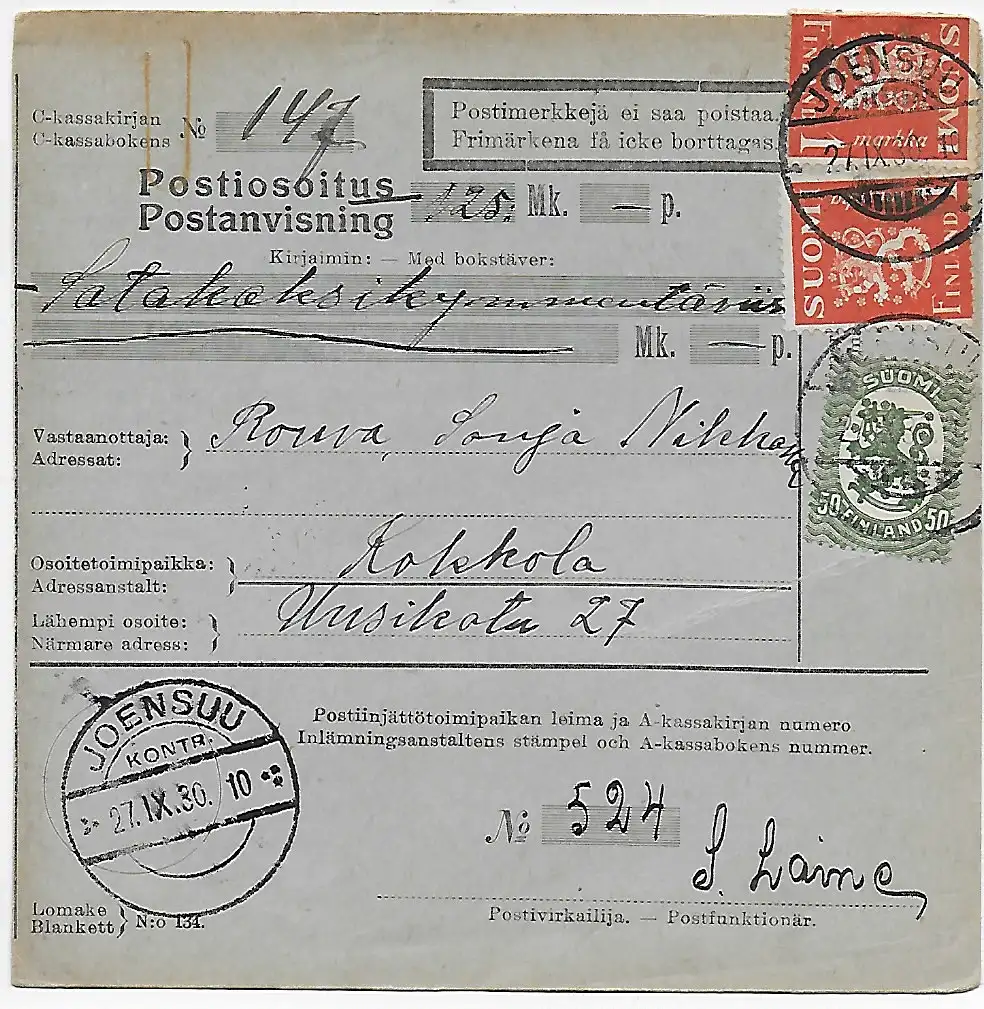 C-kassakirjan
C-kassabokens № 147
Postimerkkejä ei saa poistaa.
Frimärkena få icke borttagas.
Postiosoitus
Postanvisning 125: Mk. — p.
Kirjaimin: — Med bokstäver:
Satakaksikymmentäviis
Mk. — p.
Vastaanottaja:
Adressat:
Rouva, Sonja
Osoitetoimipaikka:
Adressanstalt:
Kokkola
Lähempi osoite:
Närmare adress:
Uusikatu 27
SUOMI
FINLAND
markka
JOENSUU
27.IX.30. 10
SUOMI
FINLAND
SUOMI
50 FINLAND 50
JOENSUU
KONTR.
27.IX.30. 10
Postiinjättötoimipaikan leima ja A-kassakirjan numero
Inlämningsanstaltens stämpel och A-kassabokens nummer.
№ 524
S. Laine
Postivirkailija. — Postfunktionär.
Lomake
Blankett N:o 134.